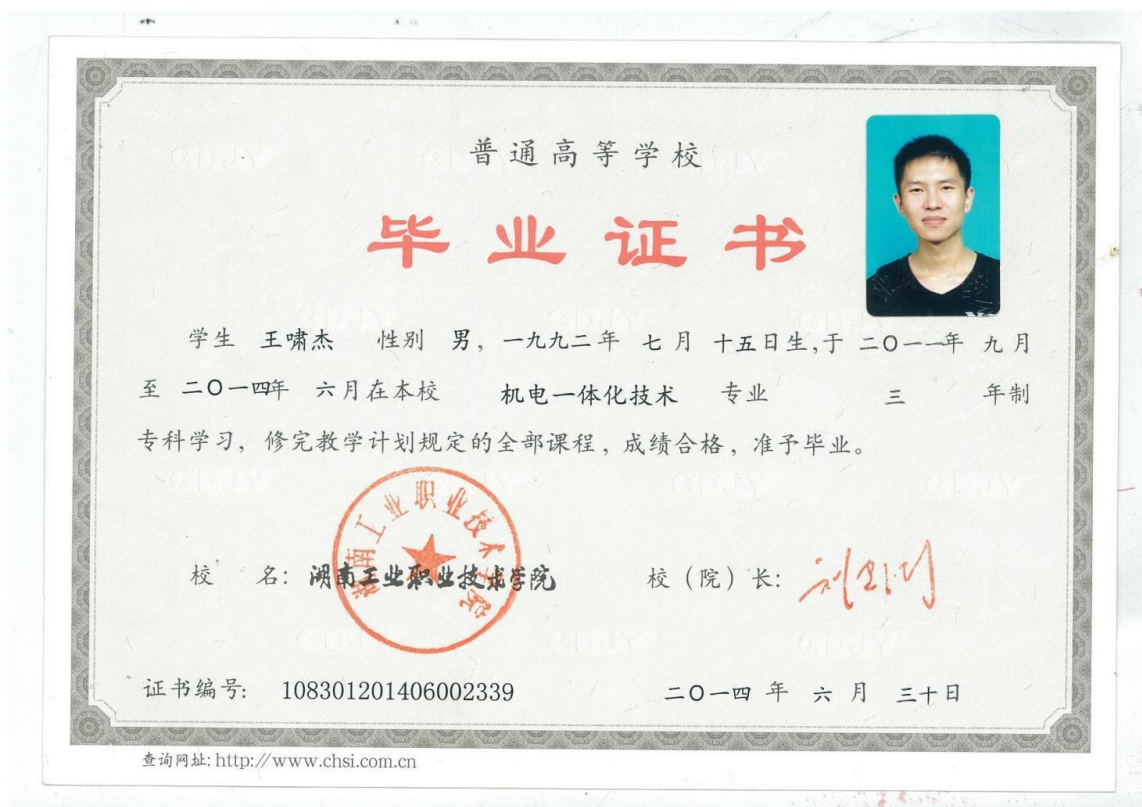 普通高等学校
毕业证书
学生 王啸杰 性别 男，一九九二年 七月 十五日生,于 二〇一一年 九月
至 二〇一四年 六月在本校 机电一体化技术 专业 三 年制
专科学习，修完教学计划规定的全部课程，成绩合格，准予毕业。
湖南工业职业技术学院
校 名：湖南工业职业技术学院 校（院）长：
证书编号： 108301201406002339 二〇一四 年 六 月 三十日
查询网址: http://www.chsi.com.cn